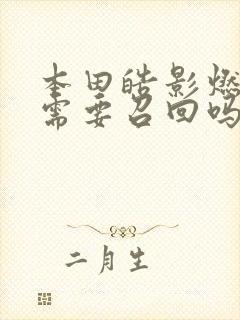 本田皓影燃
需要召回吗
二月生